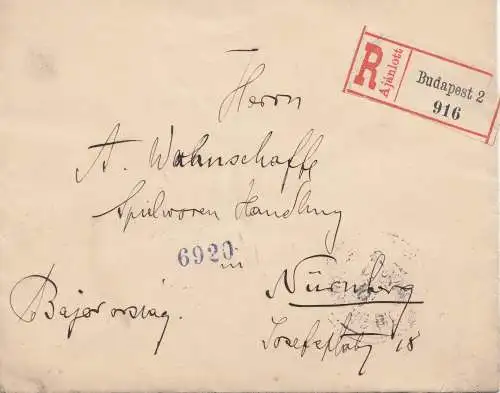 R
Ajánlott
Budapest 2
916
Herrn
A. Wahnschaffe
Spielwaren Handlung
6920
in
Nürnberg
Bajorország.
Josefsplatz 18